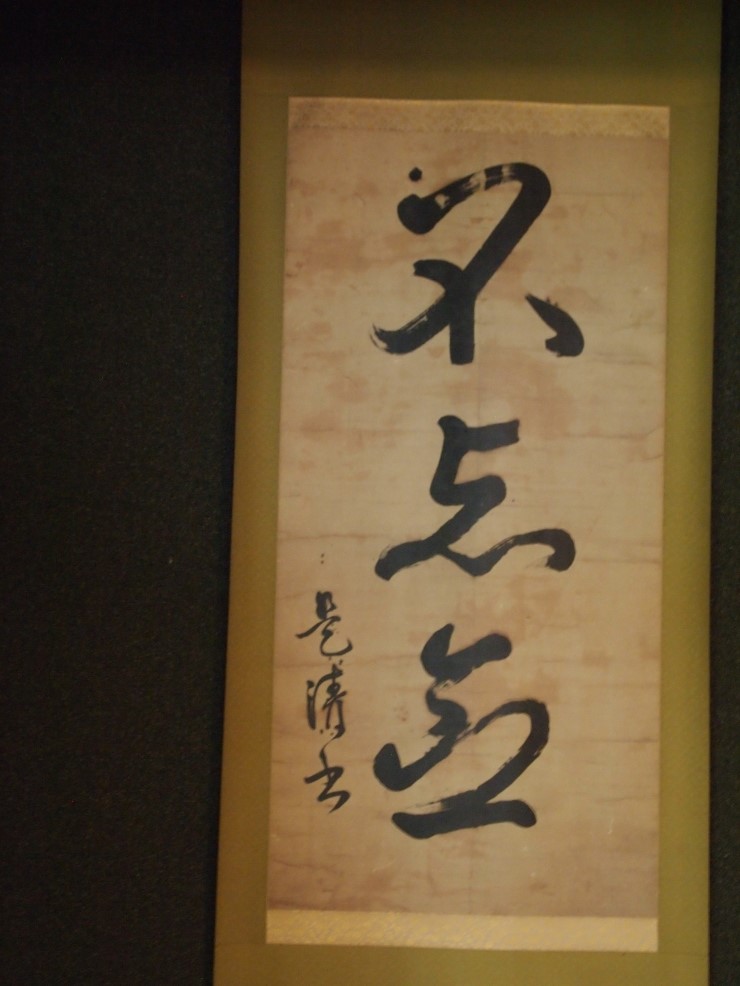 不忘無
是清書